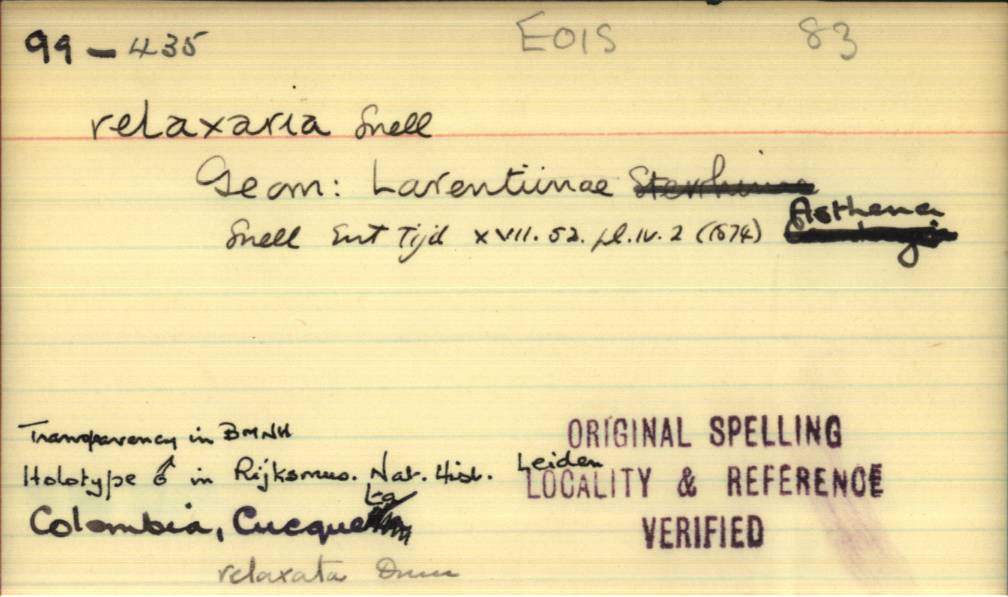 99 - 435 EOIS 83
relaxaria Snell
Geom: Larentiinae Sterrhinae
Snell Ent Tijd XVII. 52. pl. IV. 2 (1874) Asthena
Transparency in BMNH
Holotype ♂ in Rijksmus. Nat. Hist. Leiden
Colombia, Cucqueta
relaxata
ORIGINAL SPELLING
LOCALITY & REFERENCE
VERIFIED